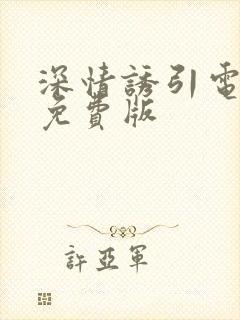 深情誘引電
免費版
許亞軍